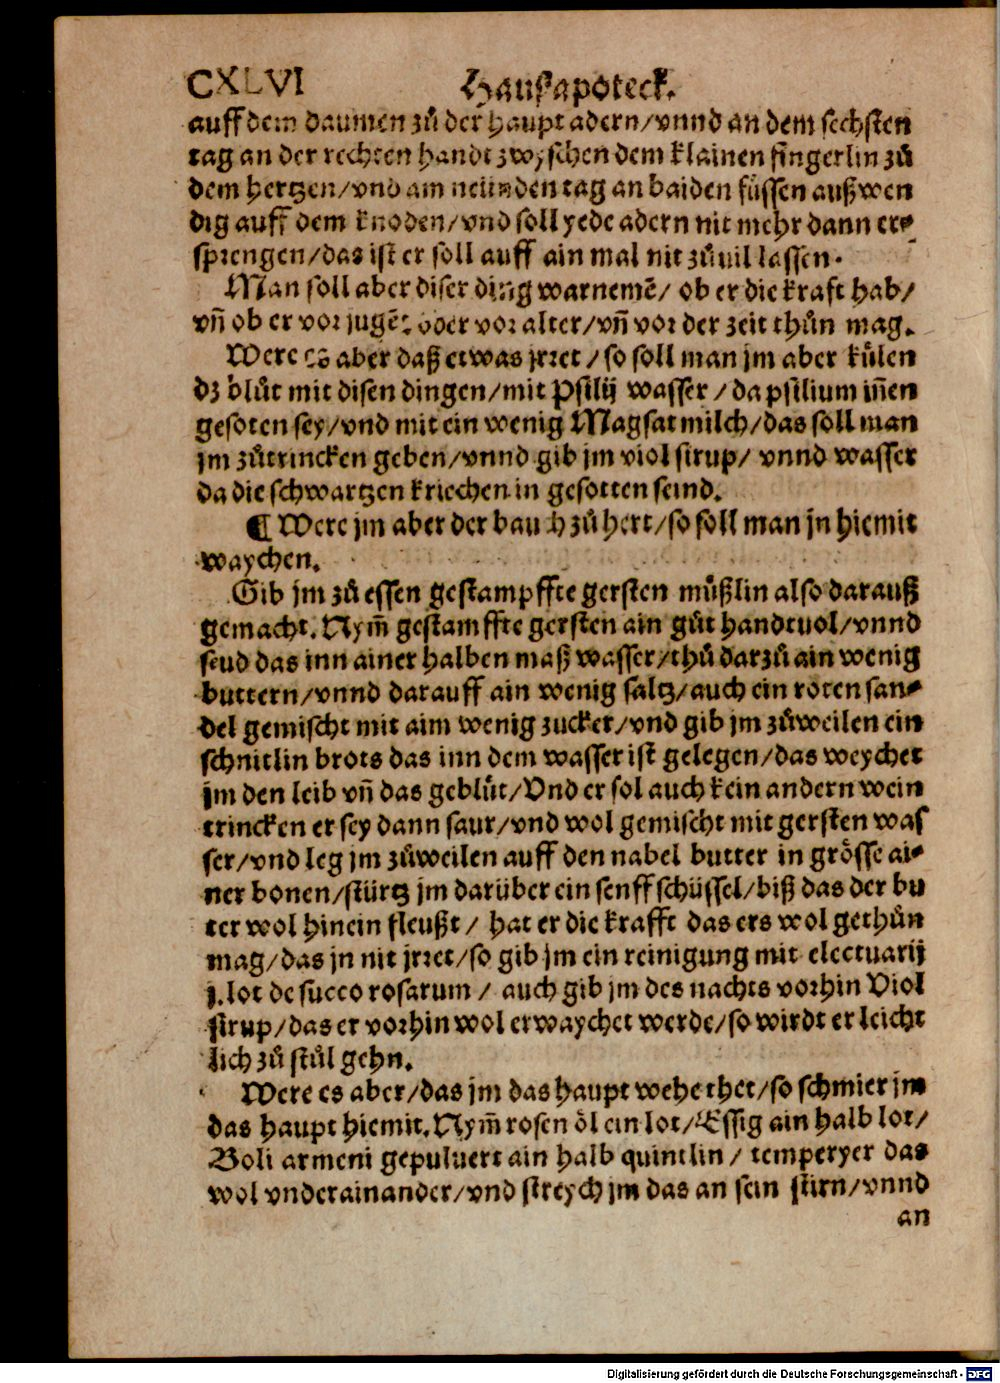 CXLVI Hausapoteck.
auff dem daumen zů der haupt adern/vnnd an dem sechsten
tag an der rechten handt zwyschen dem klainen fingerlin zů
dem hertzen/vnd am neünden tag an baiden füssen außwen
dig auff dem knoden/vnd soll yede adern nit mehr dann er⸗
sprengen/das ist er soll auff ain mal nit zůuil lassen.
Man soll aber diser ding warnemē/ ob er die kraft hab/
vñ ob er vor jugēt oder vor alter/vñ vor der zeit thůn mag.
Were es aber daß etwas jrret/so soll man jm aber külen
dz blůt mit disen dingen/mit Psilij wasser/da psilium iñen
gesoten sey/vnd mit ein wenig Magsat milch/das soll man
jm zůtrincken geben/vnnd gib jm viol sirup/ vnnd wasser
da die schwartzen kriechen in gesotten seind.
¶ Were jm aber der bauch zů hert/so soll man jn hiemit
waychen.
Gib jm zů essen gestampffte gersten můßlin also darauß
gemacht. Nym̃ gestamffte gersten ain gůt handtuol/vnnd
seud das inn ainer halben maß wasser/thů darzů ain wenig
buttern/vnnd darauff ain wenig saltz/auch ein roten san⸗
del gemischt mit aim wenig zucker/vnd gib jm zůweilen ein
schnitlin brots das inn dem wasser ist gelegen/das weychet
jm den leib vñ das geblůt/Vnd er sol auch kein andern wein
trincken er sey dann saur/vnd wol gemischt mit gersten was
ser/vnd leg jm zůweilen auff den nabel butter in grösse ai⸗
ner bonen/stürtz jm darüber ein senff schüssel/biß das der bu
ter wol hinein fleußt/ hat er die krafft das ers wol gethůn
mag/das jn nit jrret/so gib jm ein reinigung mit electuarij
j. lot de succo rosarum/ auch gib jm des nachts vorhin Viol
sirup/das er vorhin wol erwaychet werde/so wirdt er leicht
lich zů stůl gehn.
Were es aber/das jm das haupt wehe thet/so schmier jm
das haupt hiemit. Nym̃ rosen öl ein lot/Essig ain halb lot/
Boli armeni gepuluert ain halb quintlin/ temperyer das
wol vnderainander/vnd streych jm das an sein stirn/vnnd
an
Digitalisierung gefördert durch die Deutsche Forschungsgemeinschaft - DFG